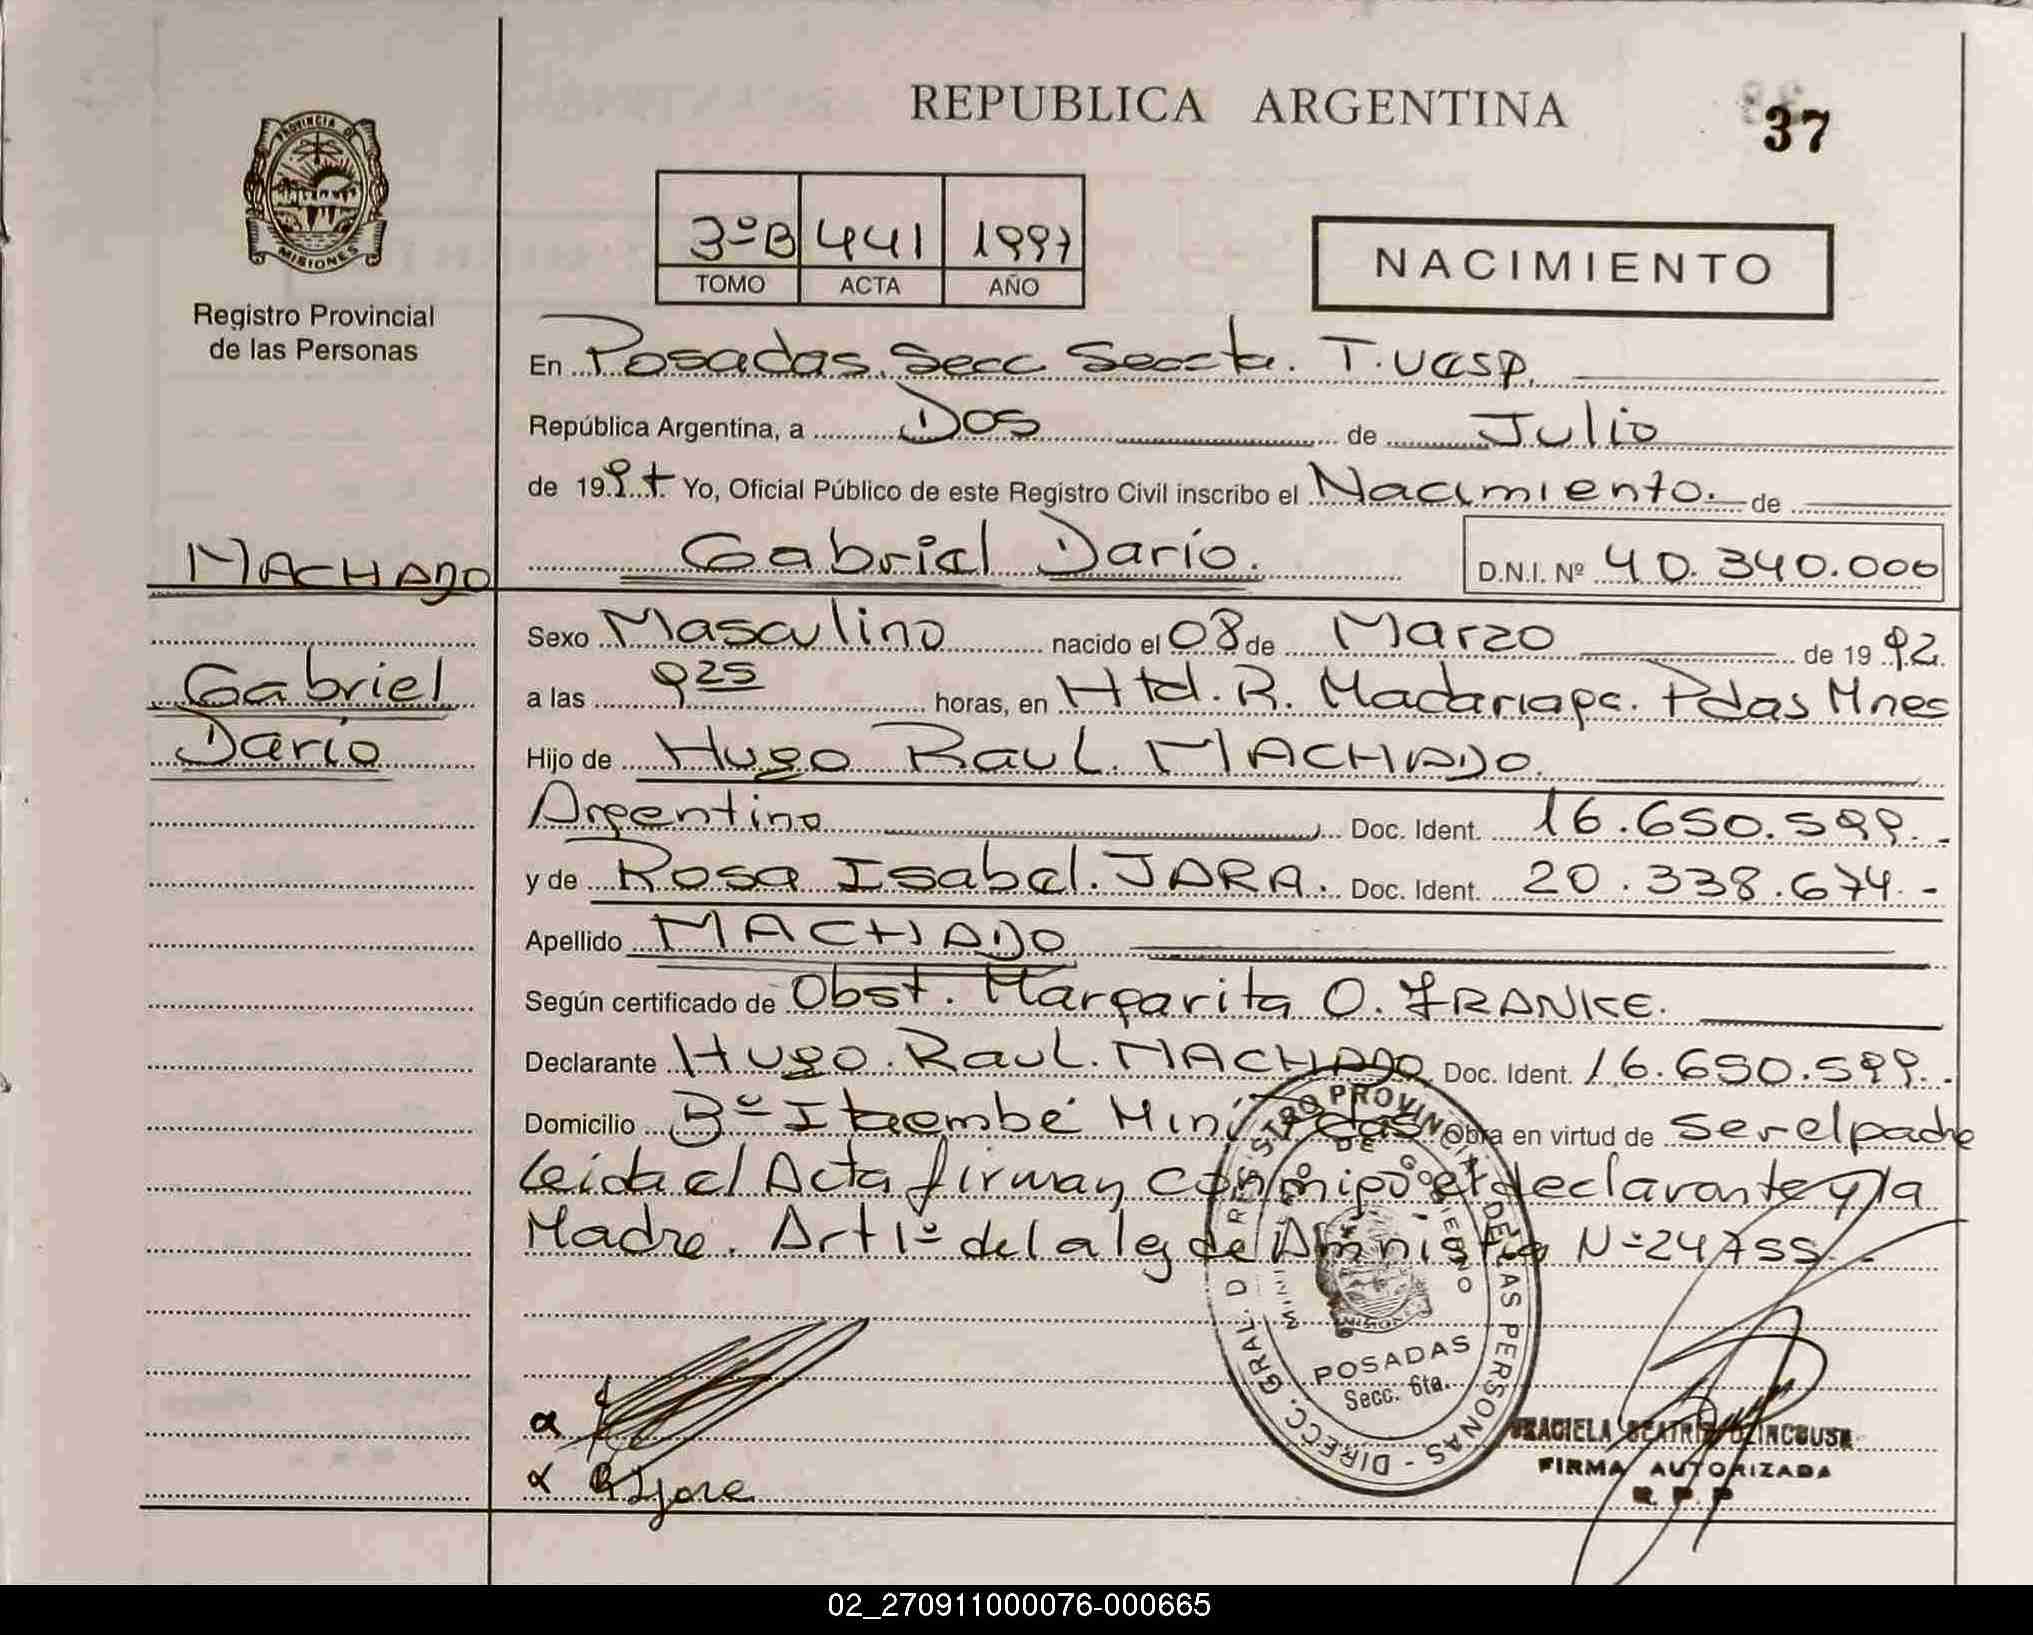 REPUBLICA ARGENTINA
37
PROVINCIA DE MISIONES
Registro Provincial
de las Personas
3º B 441 1997
TOMO ACTA AÑO
NACIMIENTO
En Posadas. Secc Sexta. T.
República Argentina, a Dos de Julio
de 1997 Yo, Oficial Público de este Registro Civil inscribo el Nacimiento. de
MACHADO
Gabriel Darío.
D.N.I. Nº 40.340.000
Gabriel
Darío
Sexo Masculino nacido el 08 de Marzo de 1992.
a las 9 25 horas, en Htal. R. Madariaga. Pdas Mnes
Hijo de Hugo Raul. MACHADO.
Argentino Doc. Ident. 16.650.599.-
y de Rosa Isabel. JARA. Doc. Ident. 20.338.674.-
Apellido MACHADO
Según certificado de Obst. Margarita O. FRANKE.
Declarante Hugo. Raul. MACHADO. Doc. Ident. 16.650.599.-
Domicilio Bº Itaembé Miní Pdas Obra en virtud de ser el padre
Leida el Acta firman conmigo el declarante y la
Madre. Art 1º de la ley de Amnistía Nº 24755.-
DIRECC. GRAL. D REGISTRO PROVINCIAL DE LAS PERSONAS
MINISTERIO DE GOBIERNO
POSADAS
Secc. 6ta.
GRACIELA BEATRIZ
FIRMA AUTORIZADA
R. P. P
02_270911000076-000665